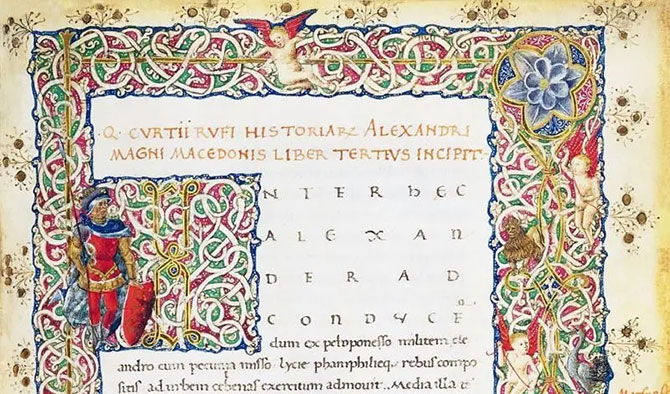 Q. CVRTII RUFI HISTORIAR ALEXANDRI
MAGNI MACEDONIS LIBER TERTIVS INCIPIT.
I N T E R H E C
A L E X A N
D E R A D
C O N D V C E
dum ex peloponesso militem cle
andro cum pecunia misso. lycie phamphilieq. rebus compo
sitis ad urbem exercitum admovit. Media illa t